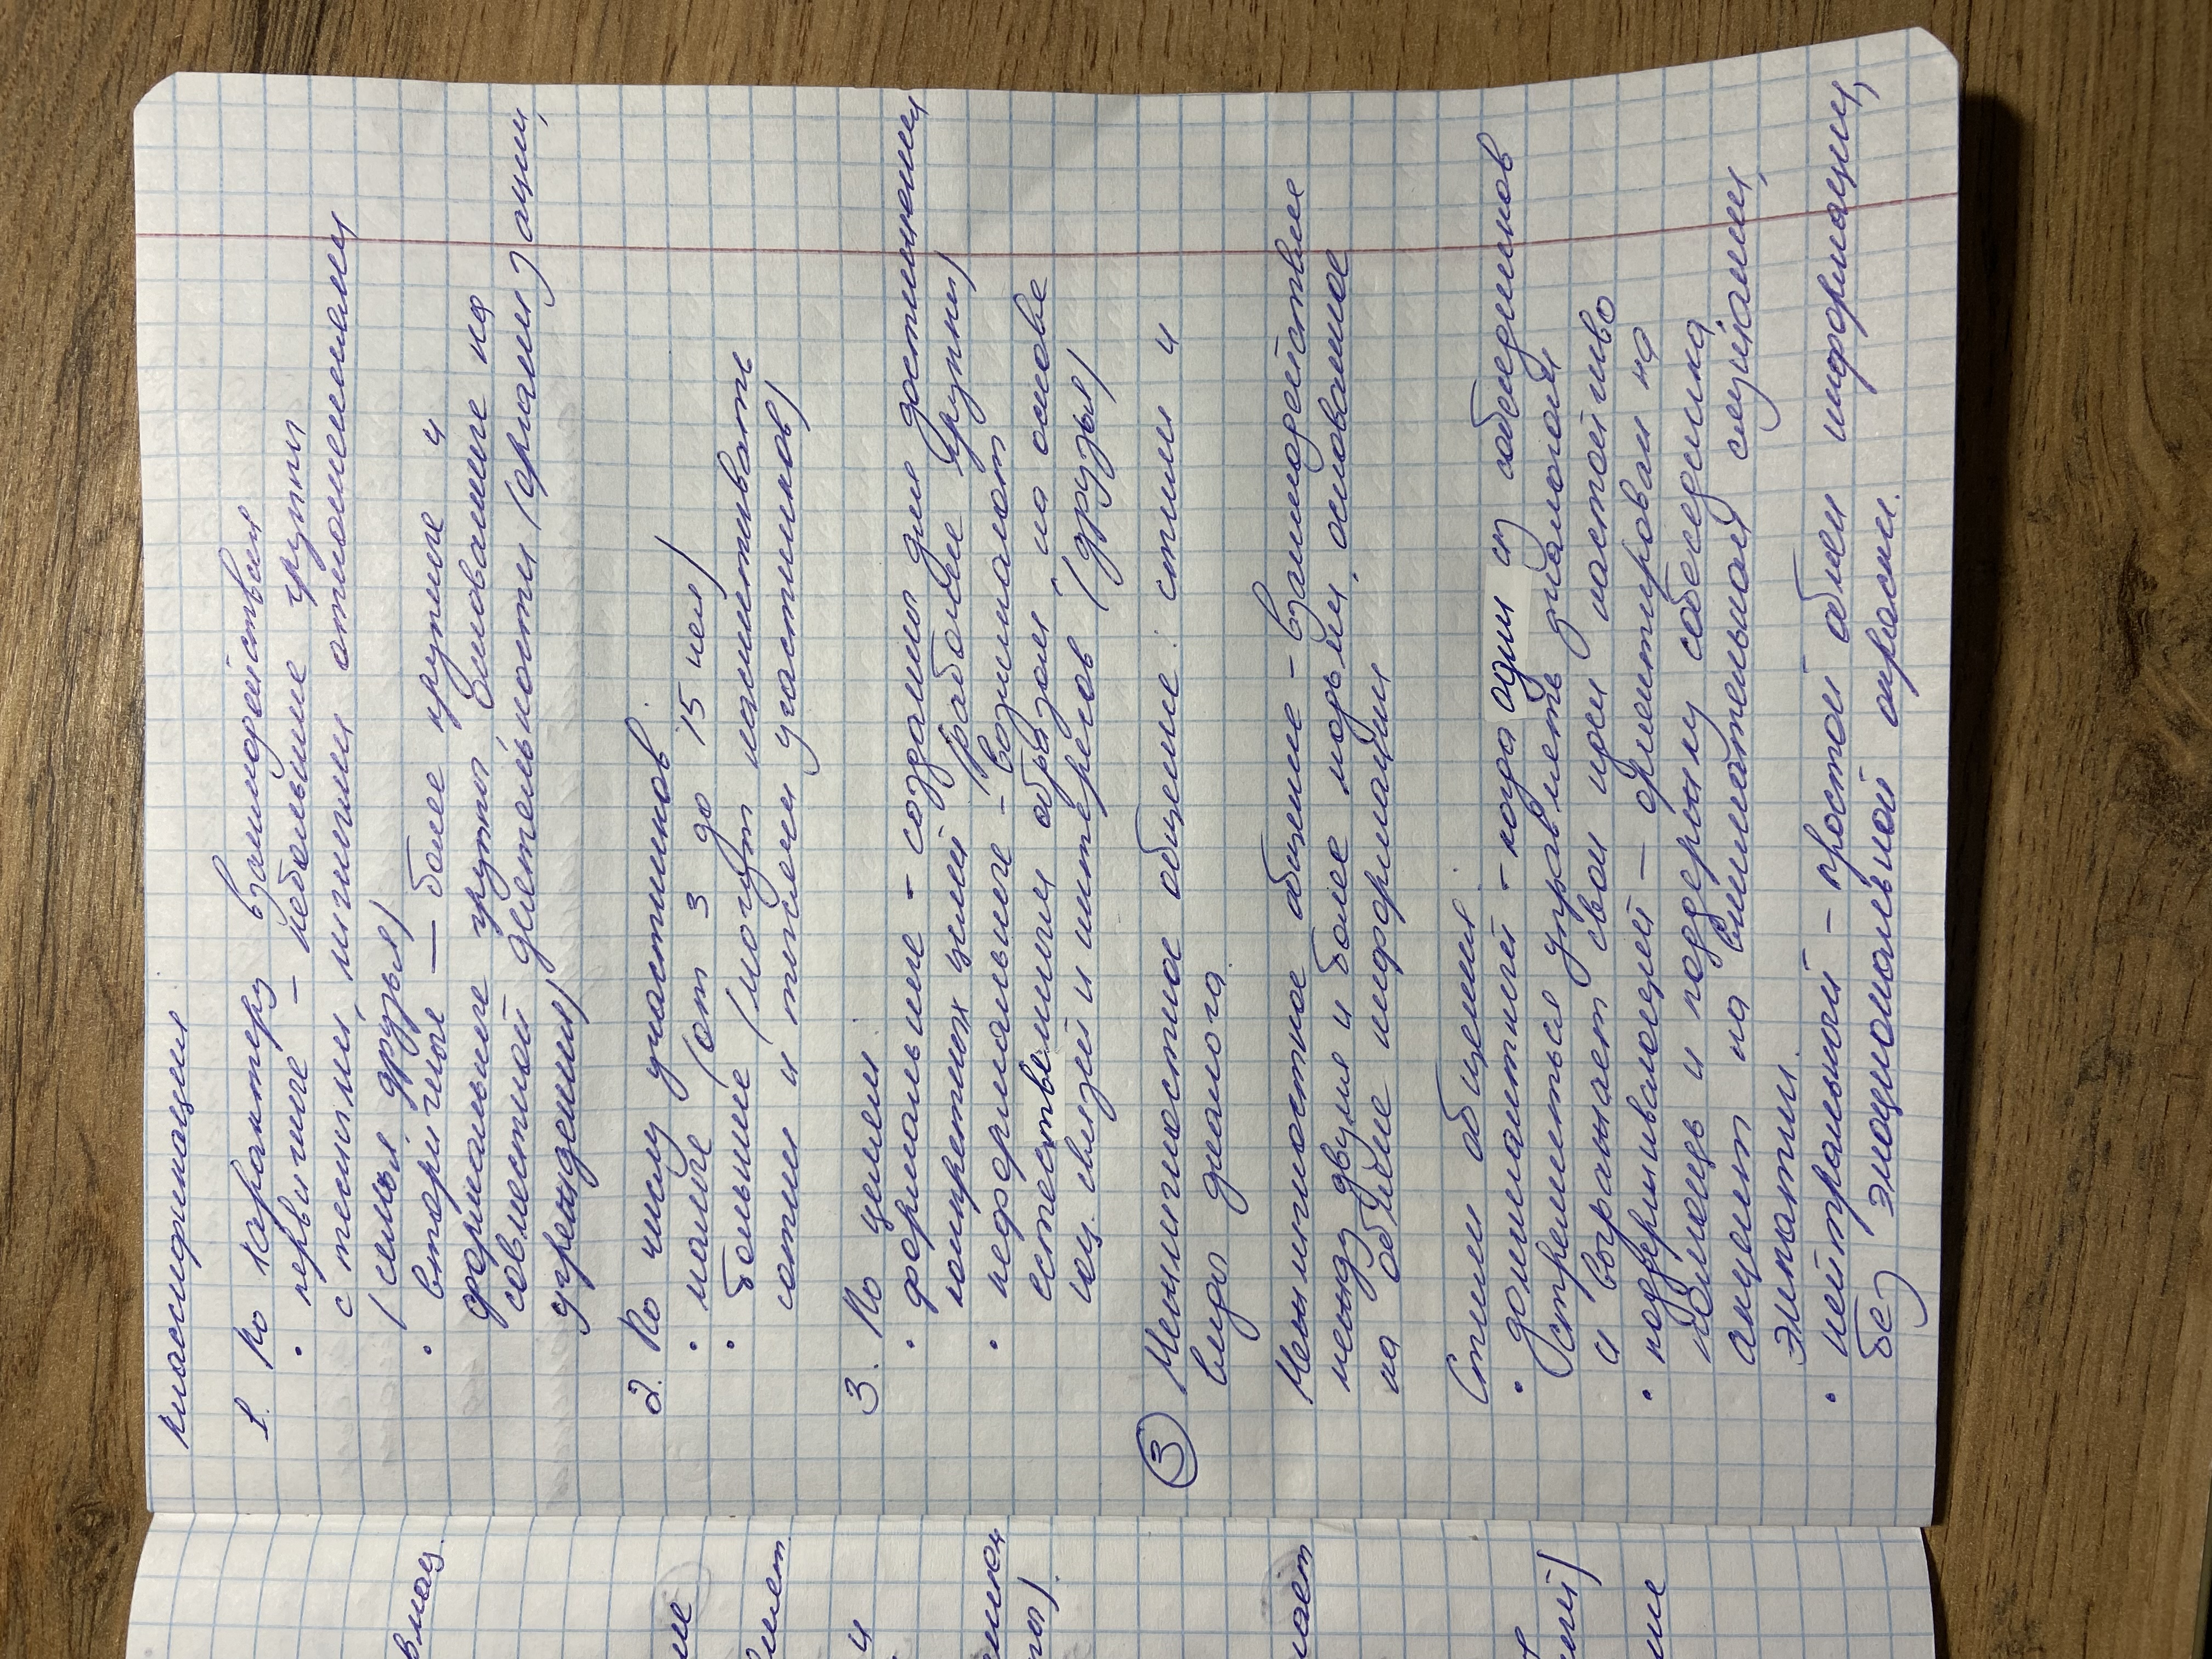 классификация
1. По характеру взаимодействия
• первичные – небольшие группы
с тесными, личными отношениями
(семья, друзья)
• вторичные – более крупные и
формальные группы, основанные на
совместной деятельности (организации,
учреждения)
2. По числу участников:
• малые (от 3 до 15 чел)
• большие (могут насчитывать
сотни и тысячи участников)
3. По цели:
• формальные - созданы для достижения
конкретных целей (рабочие группы)
• неформальные - возникают
естественным образом на основе
соц. связей и интересов (друзья)
③ Межличностное общение: стили и
виды диалога.
Межличностное общение - взаимодействие
между двумя и более людьми, основанное
на обмене информации
Стили общения:
• доминантный - когда один из собеседников
стремиться управлять диалогом
и выражает свои идеи настойчиво
• поддерживающий – ориентирован на
помощь и поддержку собеседника,
акцент на внимательном слушании,
эмпатии.
• нейтральный – простой обмен информации,
без эмоциональной окраски.